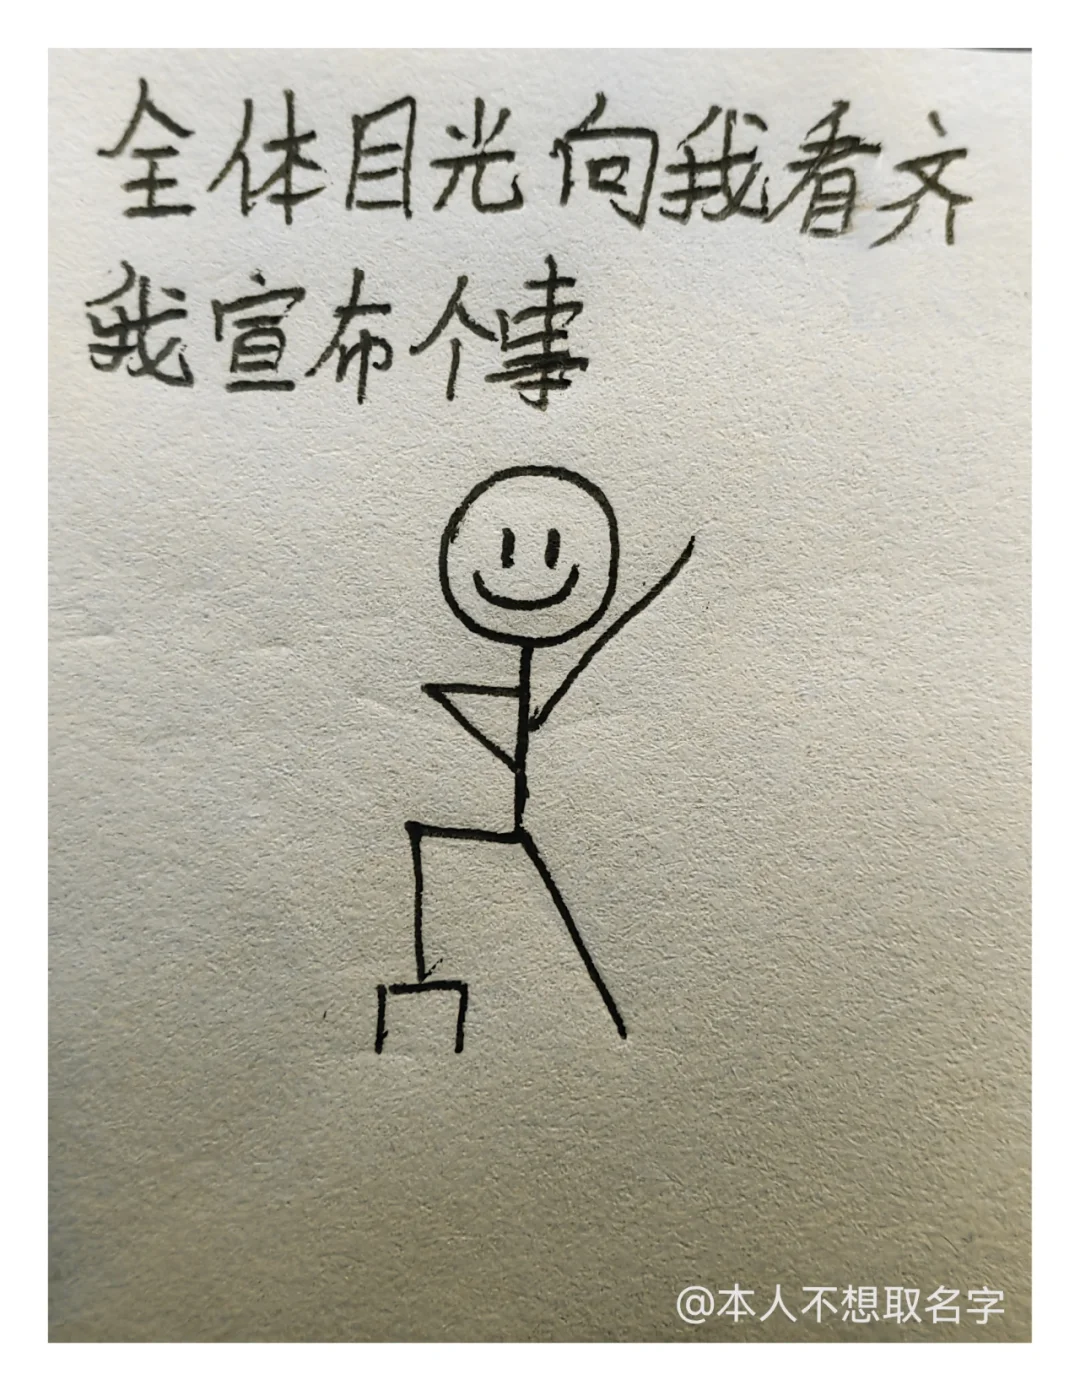 全体目光向我看齐
我宣布个事
@本人不想取名字